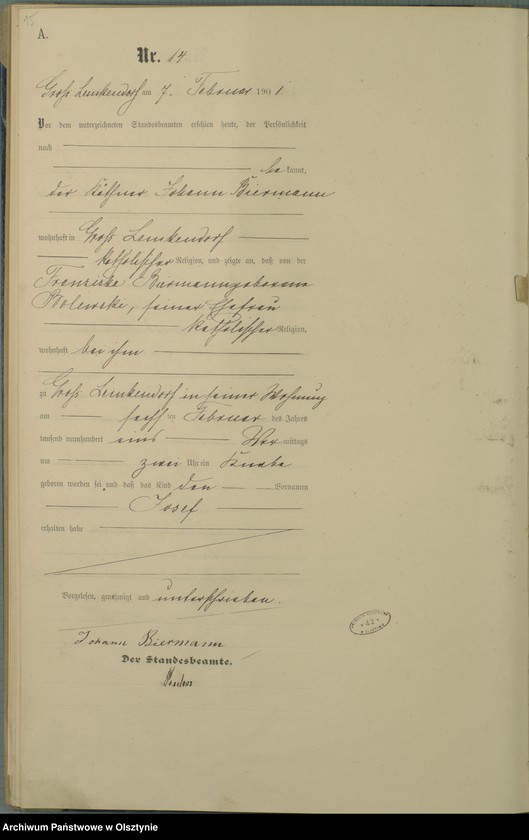 15
A.
Nr. 14
Groß Lemkendorf am 7. Februar 1901
Vor dem unterzeichneten Standesbeamten erschien heute, der Persönlichkeit
nach
bekannt,
der Käthner Johann Biermann
wohnhaft in Groß Lemkendorf
katholischer Religion, und zeigte an, daß von der
Franziska Biermann geborene
seiner Ehefrau
katholischer Religion,
wohnhaft bei ihm
zu Groß Lemkendorf in seiner Wohnung
am sechsten Februar des Jahres
tausend neunhundert eins Vormittags
um zwei Uhr ein Knabe
geboren worden sei und daß das Kind den Vornamen
Josef
erhalten habe
Vorgelesen, genehmigt und unterschrieben.
Johann Biermann
Der Standesbeamte.
Archiwum Państwowe w Olsztynie